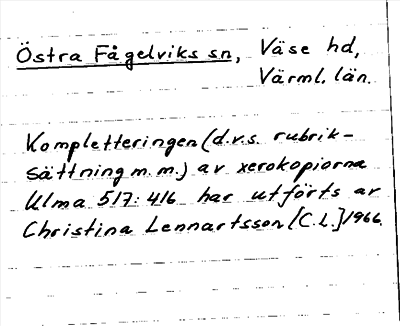 Östra Fågelviks sn, Väse hd,
Värml. län.
Kompletteringen (d.v.s. rubrik-
sättning m.m.) av xerokopiorna
Ulma 517:416 har utförts av
Christina Lennartsson [C.L.] 1966.